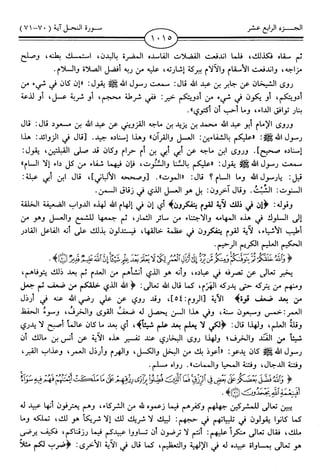 الجـــزء الرابع عشر
١٠١٥
سورة النحل آية (٧٠-٧١)
ثم سقاه فكذلك، فلما اندفعت الفضلات الفاسدة المضرة بالبدن، استمسك بطنه، وصلح
مزاجه، واندفعت الأسقام والآلام ببركة إشارته، عليه من ربه أفضل الصلاة والسلام.
روى الشيخان عن جابر بن عبد الله قال: سمعت رسول الله ﷺ يقول: «إن كان في شيء من
أدويتكم، أو يكون في شيء من أدويتكم خير: ففي شرطة محجم، أو شربة عسل، أو لذعة
بنار توافق الداء، وما أحب أن أكتوي».
وروى الإمام أبو عبد الله محمد بن يزيد بن ماجه القزويني عن عبد الله بن مسعود قال: قال
رسول الله ﷺ: «عليكم بالشفاءين: العسل والقرآن» وهذا إسناده جيد. [قال في الزوائد: هذا
إسناده صحيح]. وروى ابن ماجه عن أبي أبي بن أم حرام وكان قد صلى القبلتين، يقول:
سمعت رسول الله ﷺ يقول: «عليكم بالسَّنا والسَّنُوت، فإن فيهما شفاء من كل داء إلا السام»
قيل: يارسول الله وما السام؟ قال: «الموت». [وصححه الألباني]، قال ابن أبي عبلة:
السنوت: الشِّبْتُ. وقال آخرون: بل هو العسل الذي في زقاق السمن.
وقوله: ﴿إن في ذلك لآية لقوم يتفكرون﴾ أي إن في إلهام الله لهذه الدواب الضعيفة الخلقة
إلى السلوك في هذه المهامه والاجتناء من سائر الثمار، ثم جمعها للشمع والعسل وهو من
أطيب الأشياء، لآية لقوم يتفكرون في عظمة خالقها، فيستدلون بذلك على أنه الفاعل القادر
الحكيم العليم الكريم الرحيم.
﴿وَاللَّهُ خَلَقَكُمْ ثُمَّ يَتَوَفَّاكُمْ وَمِنكُم مَّن يُرَدُّ إِلَىٰ أَرْذَلِ الْعُمُرِ لِكَيْ لَا يَعْلَمَ بَعْدَ عِلْمٍ شَيْئًا إِنَّ اللَّهَ عَلِيمٌ قَدِيرٌ﴾.
يخبر تعالى عن تصرفه في عباده، وأنه هو الذي أنشأهم من العدم ثم بعد ذلك يتوفاهم،
ومنهم من يتركه حتى يدركه الهَرَم، كما قال الله تعالى: ﴿الله الذي خلقكم من ضعف ثم جعل
من بعد ضعف قوة﴾ الآية [الروم: ٥٤]، وقد روي عن علي رضي الله عنه في أرذل
العمر: خمس وسبعون سنة، وفي هذا السن يحصل له ضعفُ القوى والخَرَف، وسوءُ الحفظ
وقلةُ العلم، ولهذا قال: ﴿لكي لا يعلم بعد علم شيئاً﴾، أي بعد ما كان عالماً أصبح لا يدري
شيئاً من الفَنَد والخرف؛ ولهذا روى البخاري عند تفسير هذه الآية عن أنس بن مالك أن
رسول الله ﷺ كان يدعو: «أعوذ بك من البخل والكسل، والهرم وأرذل العمر، وعذاب القبر،
وفتنة الدجال، وفتنة المحيا والممات». رواه مسلم.
﴿وَاللَّهُ فَضَّلَ بَعْضَكُمْ عَلَىٰ بَعْضٍ فِي الرِّزْقِ فَمَا الَّذِينَ فُضِّلُوا بِرَادِّي رِزْقِهِمْ عَلَىٰ مَا مَلَكَتْ أَيْمَانُهُمْ فَهُمْ فِيهِ سَوَاءٌ
أَفَبِنِعْمَةِ اللَّهِ يَجْحَدُونَ﴾.
يبين تعالى للمشركين جهلهم وكفرهم فيما زعموه لله من الشركاء، وهم يعترفون أنها عبيد له
كما كانوا يقولون في تلبياتهم في حجهم: لبيك لا شريك لك إلا شريكاً هو لك، تملكه وما
ملك، فقال تعالى منكراً عليهم: أنتم لا ترضون أن تساووا عبيدكم فيما رزقناكم، فكيف يرضى
هو تعالى بمساواة عبيده له في الإلهية والتعظيم، كما قال في الآية الأخرى: ﴿ضرب لكم مثلاً